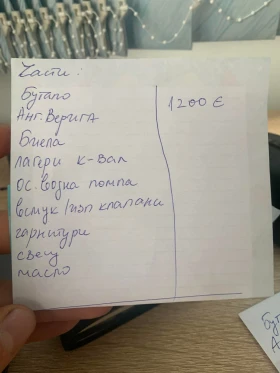 Части:
Бутало
1200 €
Анг. Верига
Биела
лагери к-вал
ос. водна помпа
всмук/изп клапани
гарнитури
свещ
масло
бут